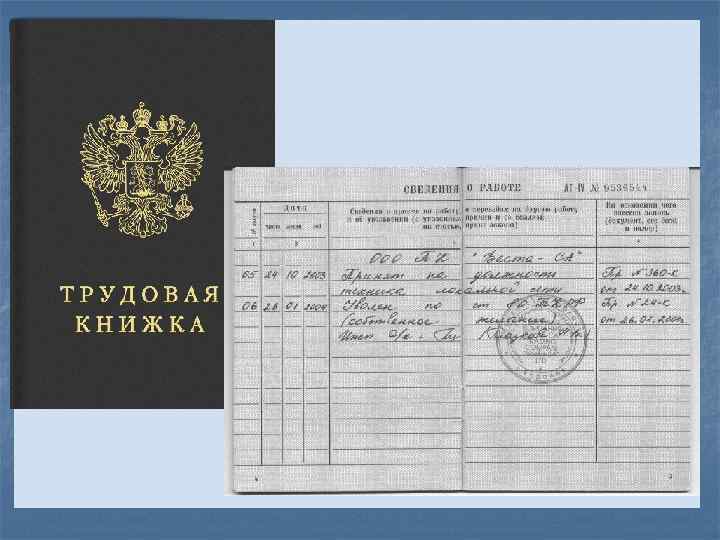 ТРУДОВАЯ
КНИЖКА
СВЕДЕНИЯ О РАБОТЕ АТ-IV № 9536544
Дата
№ записи
число месяц год
Сведения о приеме на работу, о переводах на другую работу,
и об увольнении (с указанием причин и со ссылкой
на статью, пункт закона)
На основании чего
внесена запись
(документ, его дата
и номер)
1 2 3 4
ООО ТК "Веста-СА"
05 24 10 2003 Принят на должность Пр №360-к
техника локальной сети от 24.10.2003г
06 26 01 2004 Уволен по ст 80 ТК РФ Пр №24-к
(собственное желание) от 26.01.2004
Инсп о/к